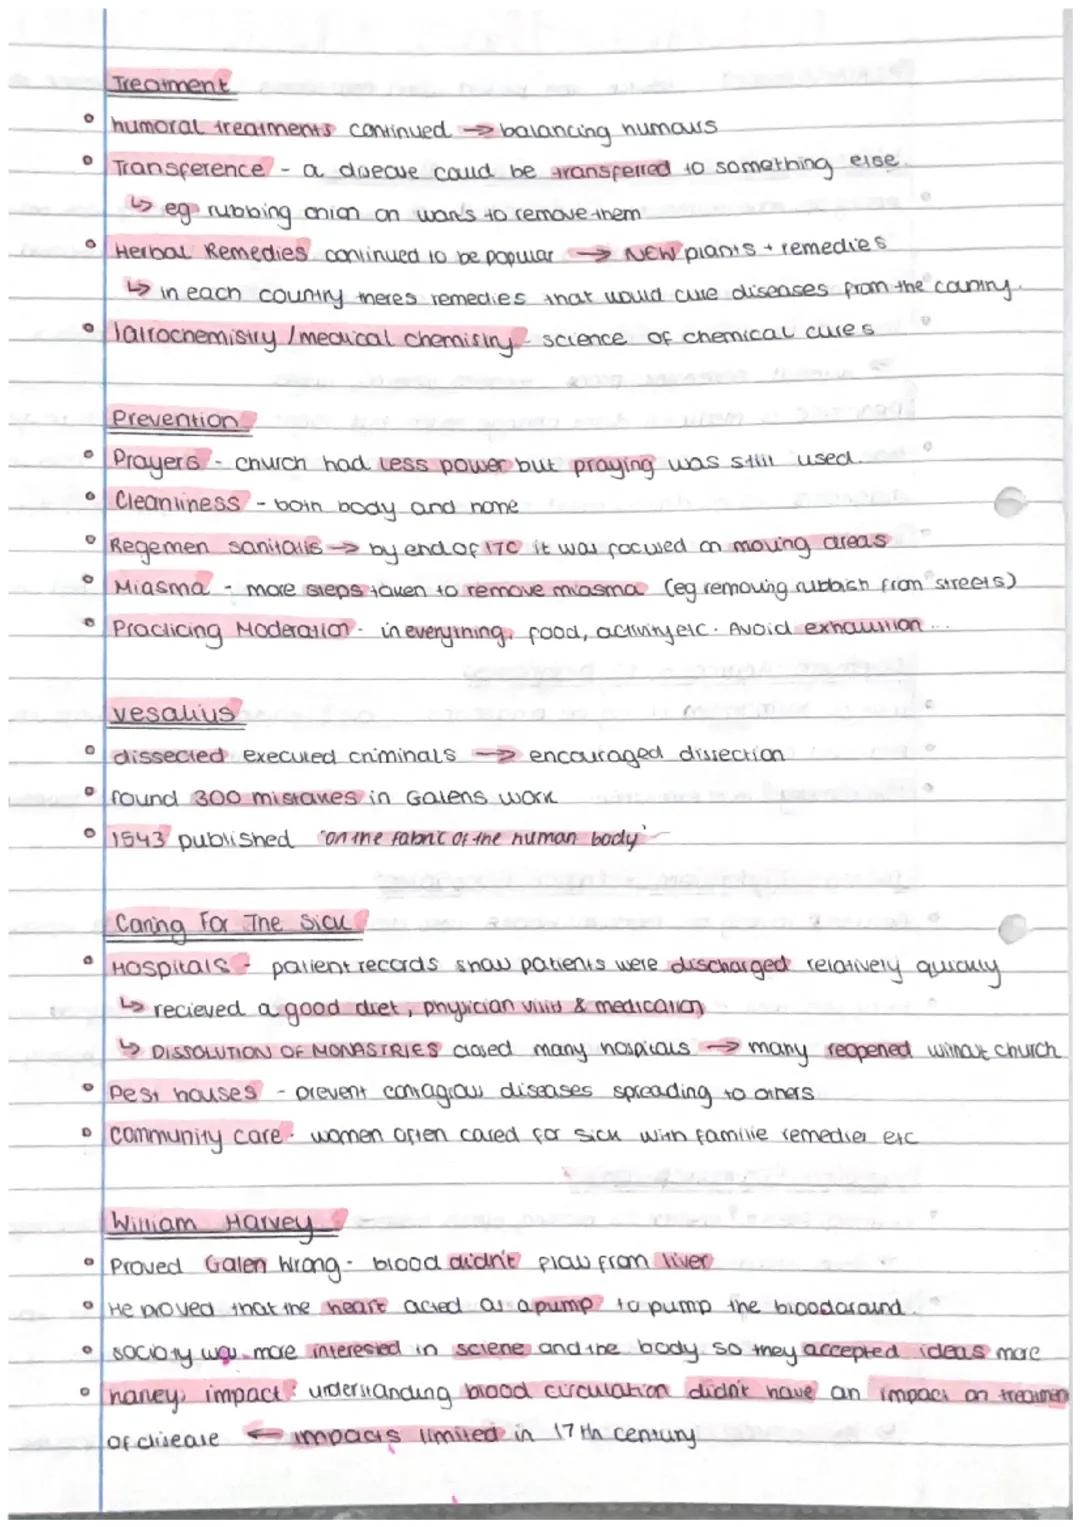 Treatment
humoral treatments continued → balancing humours
Transference - a disease could be transferred to something else.
↳ eg rubbing onion on wart's to remove them
Herbal Remedies continued to be popular → NEW plants + remedies
↳ in each country theres remedies that would cure diseases from the country.
Iatrochemistry / medical chemistry - science of chemical cures
Prevention
Prayers - church had less power but praying was still used.
Cleanliness - both body and home
Regemen sanitatis → by end of 17C it was focused on moving areas
Miasma - more steps taken to remove miasma (eg removing rubbish from streets)
Practicing Moderation - in everything, food, activity etc. Avoid exhaustion ...
Vesalius
dissected executed criminals → encouraged dissection
found 300 mistakes in Galens work
1543 published "on the fabric of the human body"
Caring For The Sick
Hospitals - patient records show patients were discharged relatively quickly
↳ recieved a good diet, physician visits & medication
↳ DISSOLUTION OF MONASTRIES closed many hospitals → many reopened without church
Pest houses - prevent contagious diseases spreading to others
Community care - women often cared for sick with familie remedies etc
William Harvey
Proved Galen wrong - blood didn't flow from liver
He proved that the heart acted as a pump to pump the blood around.
society was more interested in sciene and the body so they accepted ideas more
harveys impact: understanding blood circulation didn't have an impact on treatmen
of disease ← impacts limited in 17th century